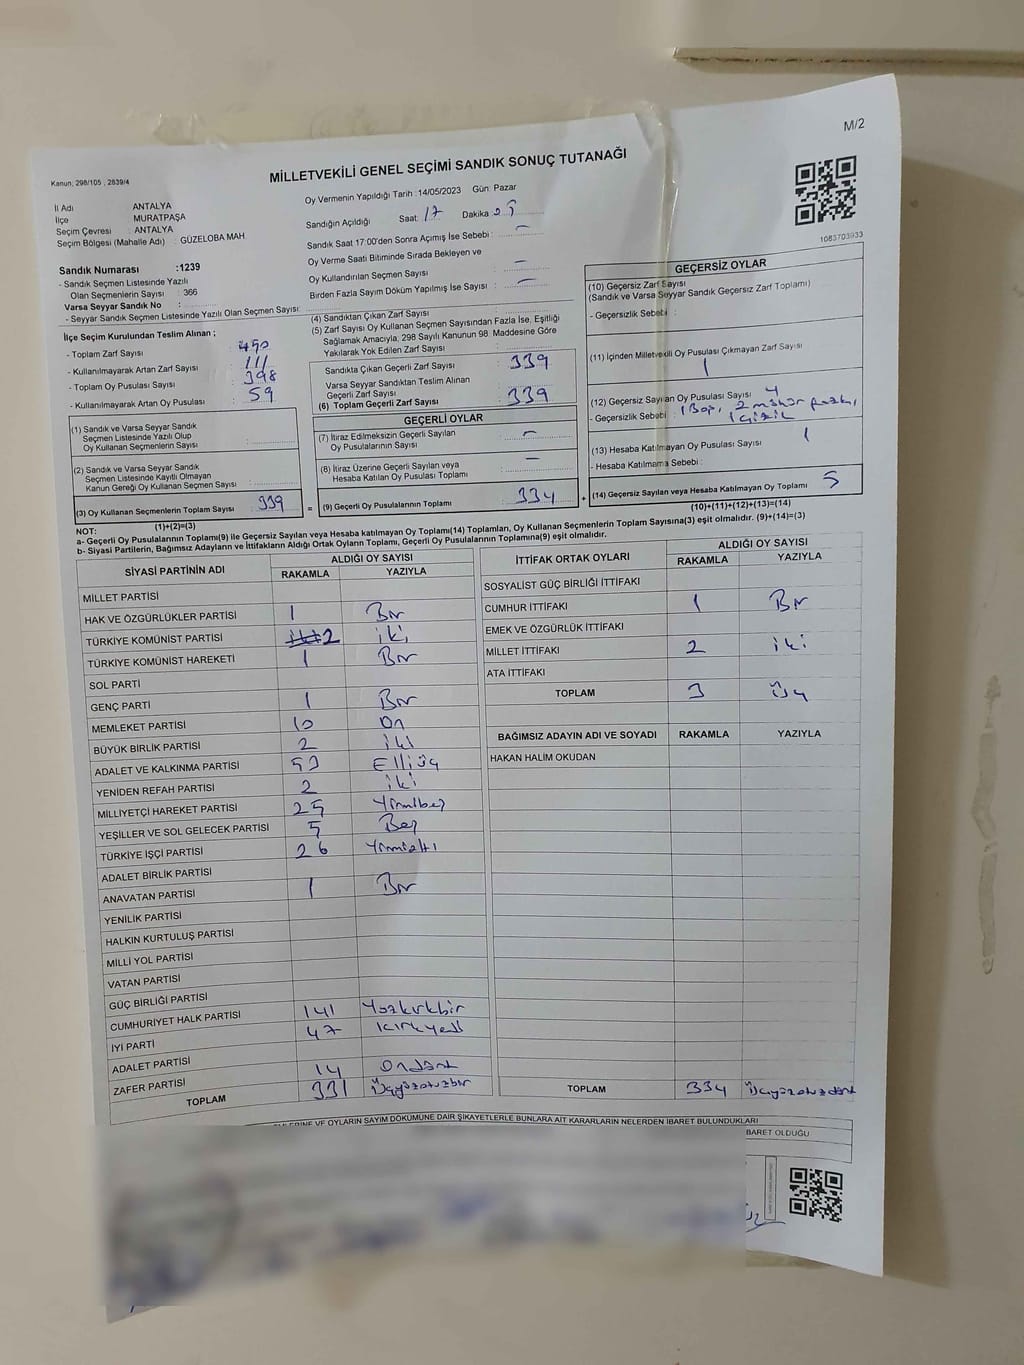 M/2
Kanun; 298/105 ; 2839/4
MİLLETVEKİLİ GENEL SEÇİMİ SANDIK SONUÇ TUTANAĞI
İl Adı ANTALYA
İlçe MURATPAŞA
Seçim Çevresi : ANTALYA
Seçim Bölgesi (Mahalle Adı) : GÜZELOBA MAH
Sandık Numarası :1239
- Sandık Seçmen Listesinde Yazılı
Olan Seçmenlerin Sayısı : 366
Varsa Seyyar Sandık No :
- Seyyar Sandık Seçmen Listesinde Yazılı Olan Seçmen Sayısı:
Oy Vermenin Yapıldığı Tarih : 14/05/2023 Gün: Pazar
Sandığın Açıldığı Saat: 17 Dakika 05
Sandık Saat 17:00'den Sonra Açımış İse Sebebi : -
Oy Verme Saati Bitiminde Sırada Bekleyen ve
Oy Kullandırılan Seçmen Sayısı -
Birden Fazla Sayım Döküm Yapılmış İse Sayısı : -
1083703933
İlçe Seçim Kurulundan Teslim Alınan ;
- Toplam Zarf Sayısı 450
- Kullanılmayarak Artan Zarf Sayısı 111
- Toplam Oy Pusulası Sayısı 398
- Kullanılmayarak Artan Oy Pusulası 59
(1) Sandık ve Varsa Seyyar Sandık
Seçmen Listesinde Yazılı Olup
Oy Kullanan Seçmenlerin Sayısı :
(2) Sandık ve Varsa Seyyar Sandık
Seçmen Listesinde Kayıtlı Olmayan
Kanun Gereği Oy Kullanan Seçmen Sayısı :
(3) Oy Kullanan Seçmenlerin Toplam Sayısı 339
(1)+(2)=(3)
(4) Sandıktan Çıkan Zarf Sayısı :
(5) Zarf Sayısı Oy Kullanan Seçmen Sayısından Fazla İse, Eşitliği
Sağlamak Amacıyla, 298 Sayılı Kanunun 98. Maddesine Göre
Yakılarak Yok Edilen Zarf Sayısı :
Sandıkta Çıkan Geçerli Zarf Sayısı : 339
Varsa Seyyar Sandıktan Teslim Alınan
Geçerli Zarf Sayısı :
(6) Toplam Geçerli Zarf Sayısı : 339
GEÇERLİ OYLAR
(7) İtiraz Edilmeksizin Geçerli Sayılan
Oy Pusulalarının Sayısı : -
(8) İtiraz Üzerine Geçerli Sayılan veya
Hesaba Katılan Oy Pusulası Toplamı : -
= (9) Geçerli Oy Pusulalarının Toplamı 334 +
GEÇERSİZ OYLAR
(10) Geçersiz Zarf Sayısı
(Sandık ve Varsa Seyyar Sandık Geçersiz Zarf Toplamı)
- Geçersizlik Sebebi :
(11) İçinden Milletvekili Oy Pusulası Çıkmayan Zarf Sayısı
1
(12) Geçersiz Sayılan Oy Pusulası Sayısı 4
- Geçersizlik Sebebi : 1 Boş, 2 mühür fazla,
1 çizik
(13) Hesaba Katılmayan Oy Pusulası Sayısı 1
- Hesaba Katılmama Sebebi :
(14) Geçersiz Sayılan veya Hesaba Katılmayan Oy Toplamı 5
(10)+(11)+(12)+(13)=(14)
NOT:
a- Geçerli Oy Pusulalarının Toplamı(9) ile Geçersiz Sayılan veya Hesaba katılmayan Oy Toplamı(14) Toplamları, Oy Kullanan Seçmenlerin Toplam Sayısına(3) eşit olmalıdır. (9)+(14)=(3)
b- Siyasi Partilerin, Bağımsız Adayların ve İttifakların Aldığı Ortak Oyların Toplamı, Geçerli Oy Pusulalarının Toplamına(9) eşit olmalıdır.
SİYASİ PARTİNİN ADI
ALDIĞI OY SAYISI
RAKAMLA YAZIYLA
MİLLET PARTİSİ
HAK VE ÖZGÜRLÜKLER PARTİSİ 1 Bir
TÜRKİYE KOMÜNİST PARTİSİ 2 iki
TÜRKİYE KOMÜNİST HAREKETİ 1 Bir
SOL PARTİ
GENÇ PARTİ 1 Bir
MEMLEKET PARTİSİ 10 On
BÜYÜK BİRLİK PARTİSİ 2 iki
ADALET VE KALKINMA PARTİSİ 53 Elliüç
YENİDEN REFAH PARTİSİ 2 iki
MİLLİYETÇİ HAREKET PARTİSİ 25 Yirmibeş
YEŞİLLER VE SOL GELECEK PARTİSİ 5 Beş
TÜRKİYE İŞÇİ PARTİSİ 26 Yirmialtı
ADALET BİRLİK PARTİSİ
ANAVATAN PARTİSİ 1 Bir
YENİLİK PARTİSİ
HALKIN KURTULUŞ PARTİSİ
MİLLİ YOL PARTİSİ
VATAN PARTİSİ
GÜÇ BİRLİĞİ PARTİSİ
CUMHURİYET HALK PARTİSİ 141 Yüzkırkbir
İYİ PARTİ 47 kırkyedi
ADALET PARTİSİ
ZAFER PARTİSİ 14 Ondört
TOPLAM 331 Üçyüzotuzbir
İTTİFAK ORTAK OYLARI
ALDIĞI OY SAYISI
RAKAMLA YAZIYLA
SOSYALİST GÜÇ BİRLİĞİ İTTİFAKI
CUMHUR İTTİFAKI 1 Bir
EMEK VE ÖZGÜRLÜK İTTİFAKI
MİLLET İTTİFAKI 2 iki
ATA İTTİFAKI
TOPLAM 3 Üç
BAĞIMSIZ ADAYIN ADI VE SOYADI RAKAMLA YAZIYLA
HAKAN HALİM OKUDAN
TOPLAM 334 Üçyüzotuzdört
VE OYLARIN SAYIM DÖKÜMÜNE DAİR ŞİKAYETLERLE BUNLARA AİT KARARLARIN NELERDEN İBARET BULUNDUKLARI
BARET OLDUĞU